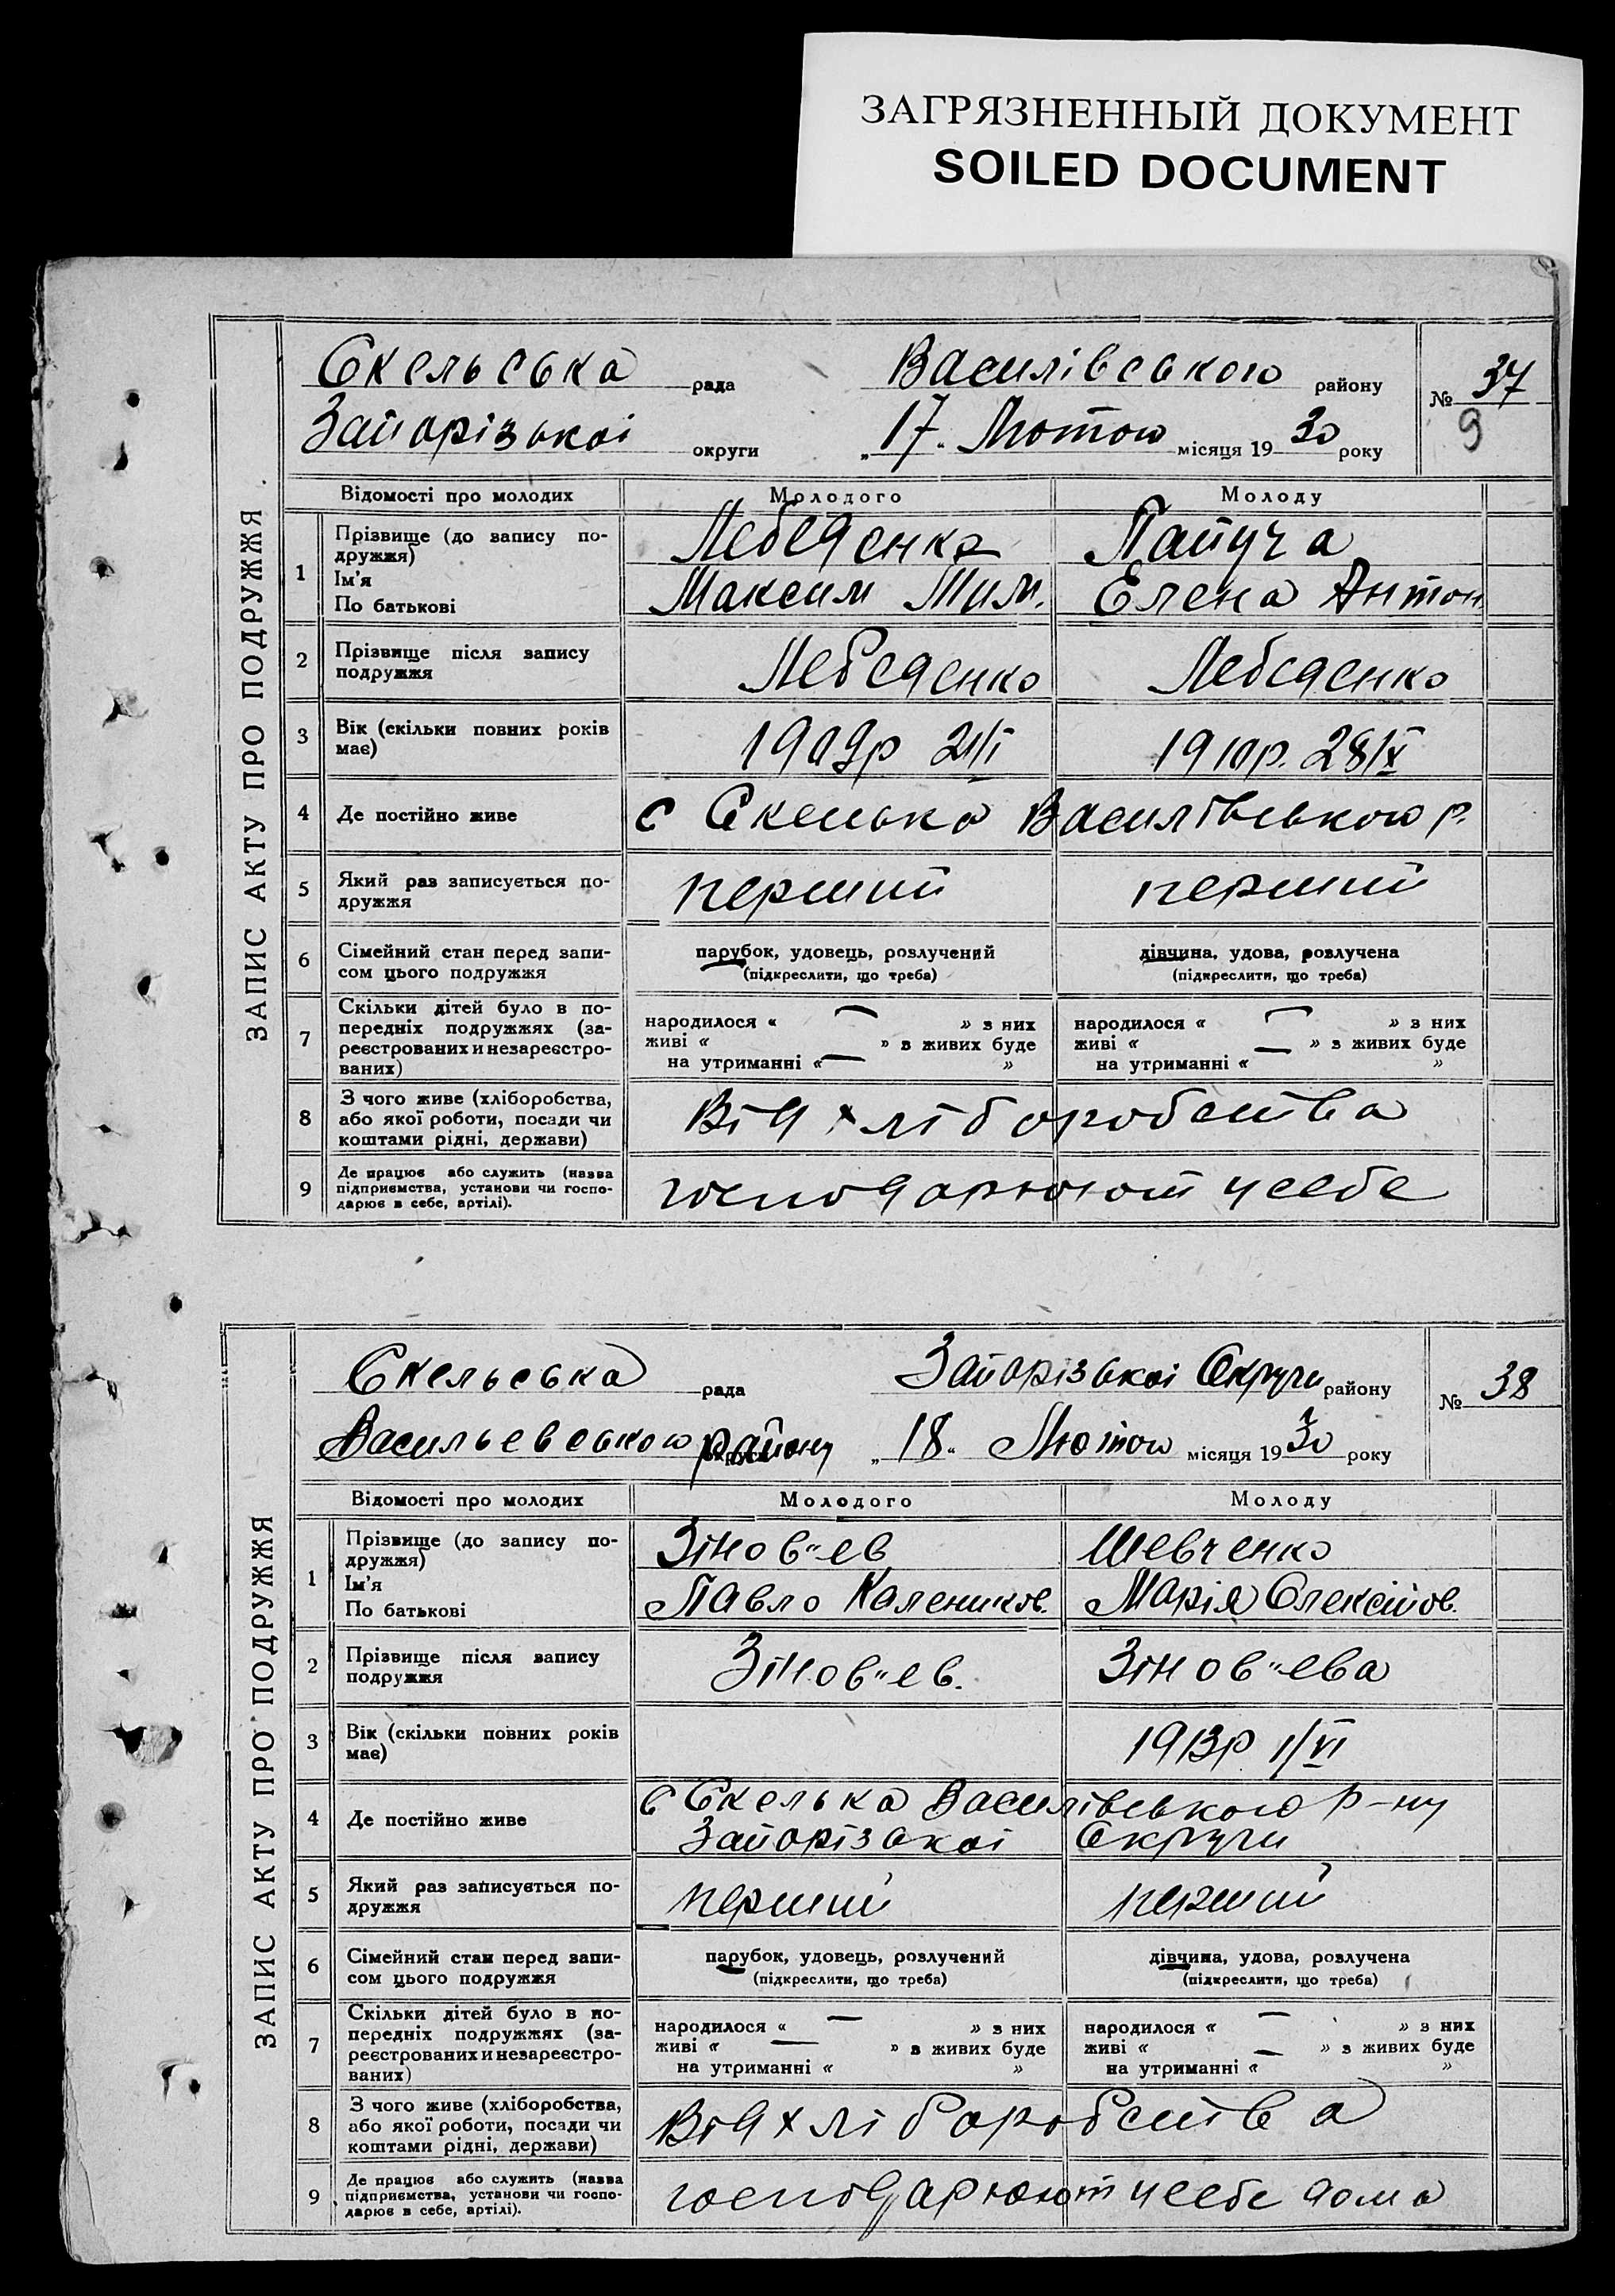 ЗАГРЯЗНЕННЫЙ ДОКУМЕНТ
SOILED DOCUMENT
ЗАПИС АКТУ ПРО ПОДРУЖЖЯ
Скельська рада Василівського району № 37
Запорізької округи „17“ Лютого місяця 1930 року 9
Відомості про молодих Молодого Молоду
1 Прізвище (до запису по-
дружжя) Лебеденко Папуча
Ім'я
По батькові Максим Тим. Елена Антон
2 Прізвище після запису
подружжя Лебеденко Лебеденко
3 Вік (скільки повних років
має) 1909р 21/I 1910р. 28/IX
4 Де постійно живе с Скелька Василівського р.
5 Який раз записується по-
дружжя перший перший
6 Сімейний стан перед запи-
сом цього подружжя
парубок, удовець, розлучений дівчина, удова, розлучена
(підкреслити, що треба) (підкреслити, що треба)
7 Скільки дітей було в по-
передніх подружжях (за-
реєстрованих и незареєстро-
ваних)
народилося « — » з них народилося « — » з них
живі « » з живих буде живі « — » з живих буде
на утриманні « — » на утриманні « »
8 З чого живе (хліборобства,
або якої роботи, посади чи
коштами рідні, держави) Від хліборобства
9 Де працює або служить (назва
підприємства, установи чи госпо-
дарює в себе, артілі). господарюют у себе
ЗАПИС АКТУ ПРО ПОДРУЖЖЯ
Скельська рада Запорізької Округи району № 38
Васильевського району округи „18“ Лютого місяця 1930 року
Відомості про молодих Молодого Молоду
1 Прізвище (до запису по-
дружжя) Зінов"ев Шевченко
Ім'я
По батькові Павло Калеников. Марія Олексійов.
2 Прізвище після запису
подружжя Зінов"ев. Зінов"ева
3 Вік (скільки повних років
має) 1913р 1/VI
4 Де постійно живе с Скелька Василівського р-ну
Запорізької Округи
5 Який раз записується по-
дружжя перший перший
6 Сімейний стан перед запи-
сом цього подружжя
парубок, удовець, розлучений дівчина, удова, розлучена
(підкреслити, що треба) (підкреслити, що треба)
7 Скільки дітей було в по-
передніх подружжях (за-
реєстрованих и незареєстро-
ваних)
народилося « — » з них народилося « — » з них
живі « — » з живих буде живі « — » з живих буде
на утриманні « » на утриманні « »
8 З чого живе (хліборобства,
або якої роботи, посади чи
коштами рідні, держави) Від хліборобства
9 Де працює або служить (назва
підприємства, установи чи госпо-
дарює в себе, артілі). господарюют у себе дома